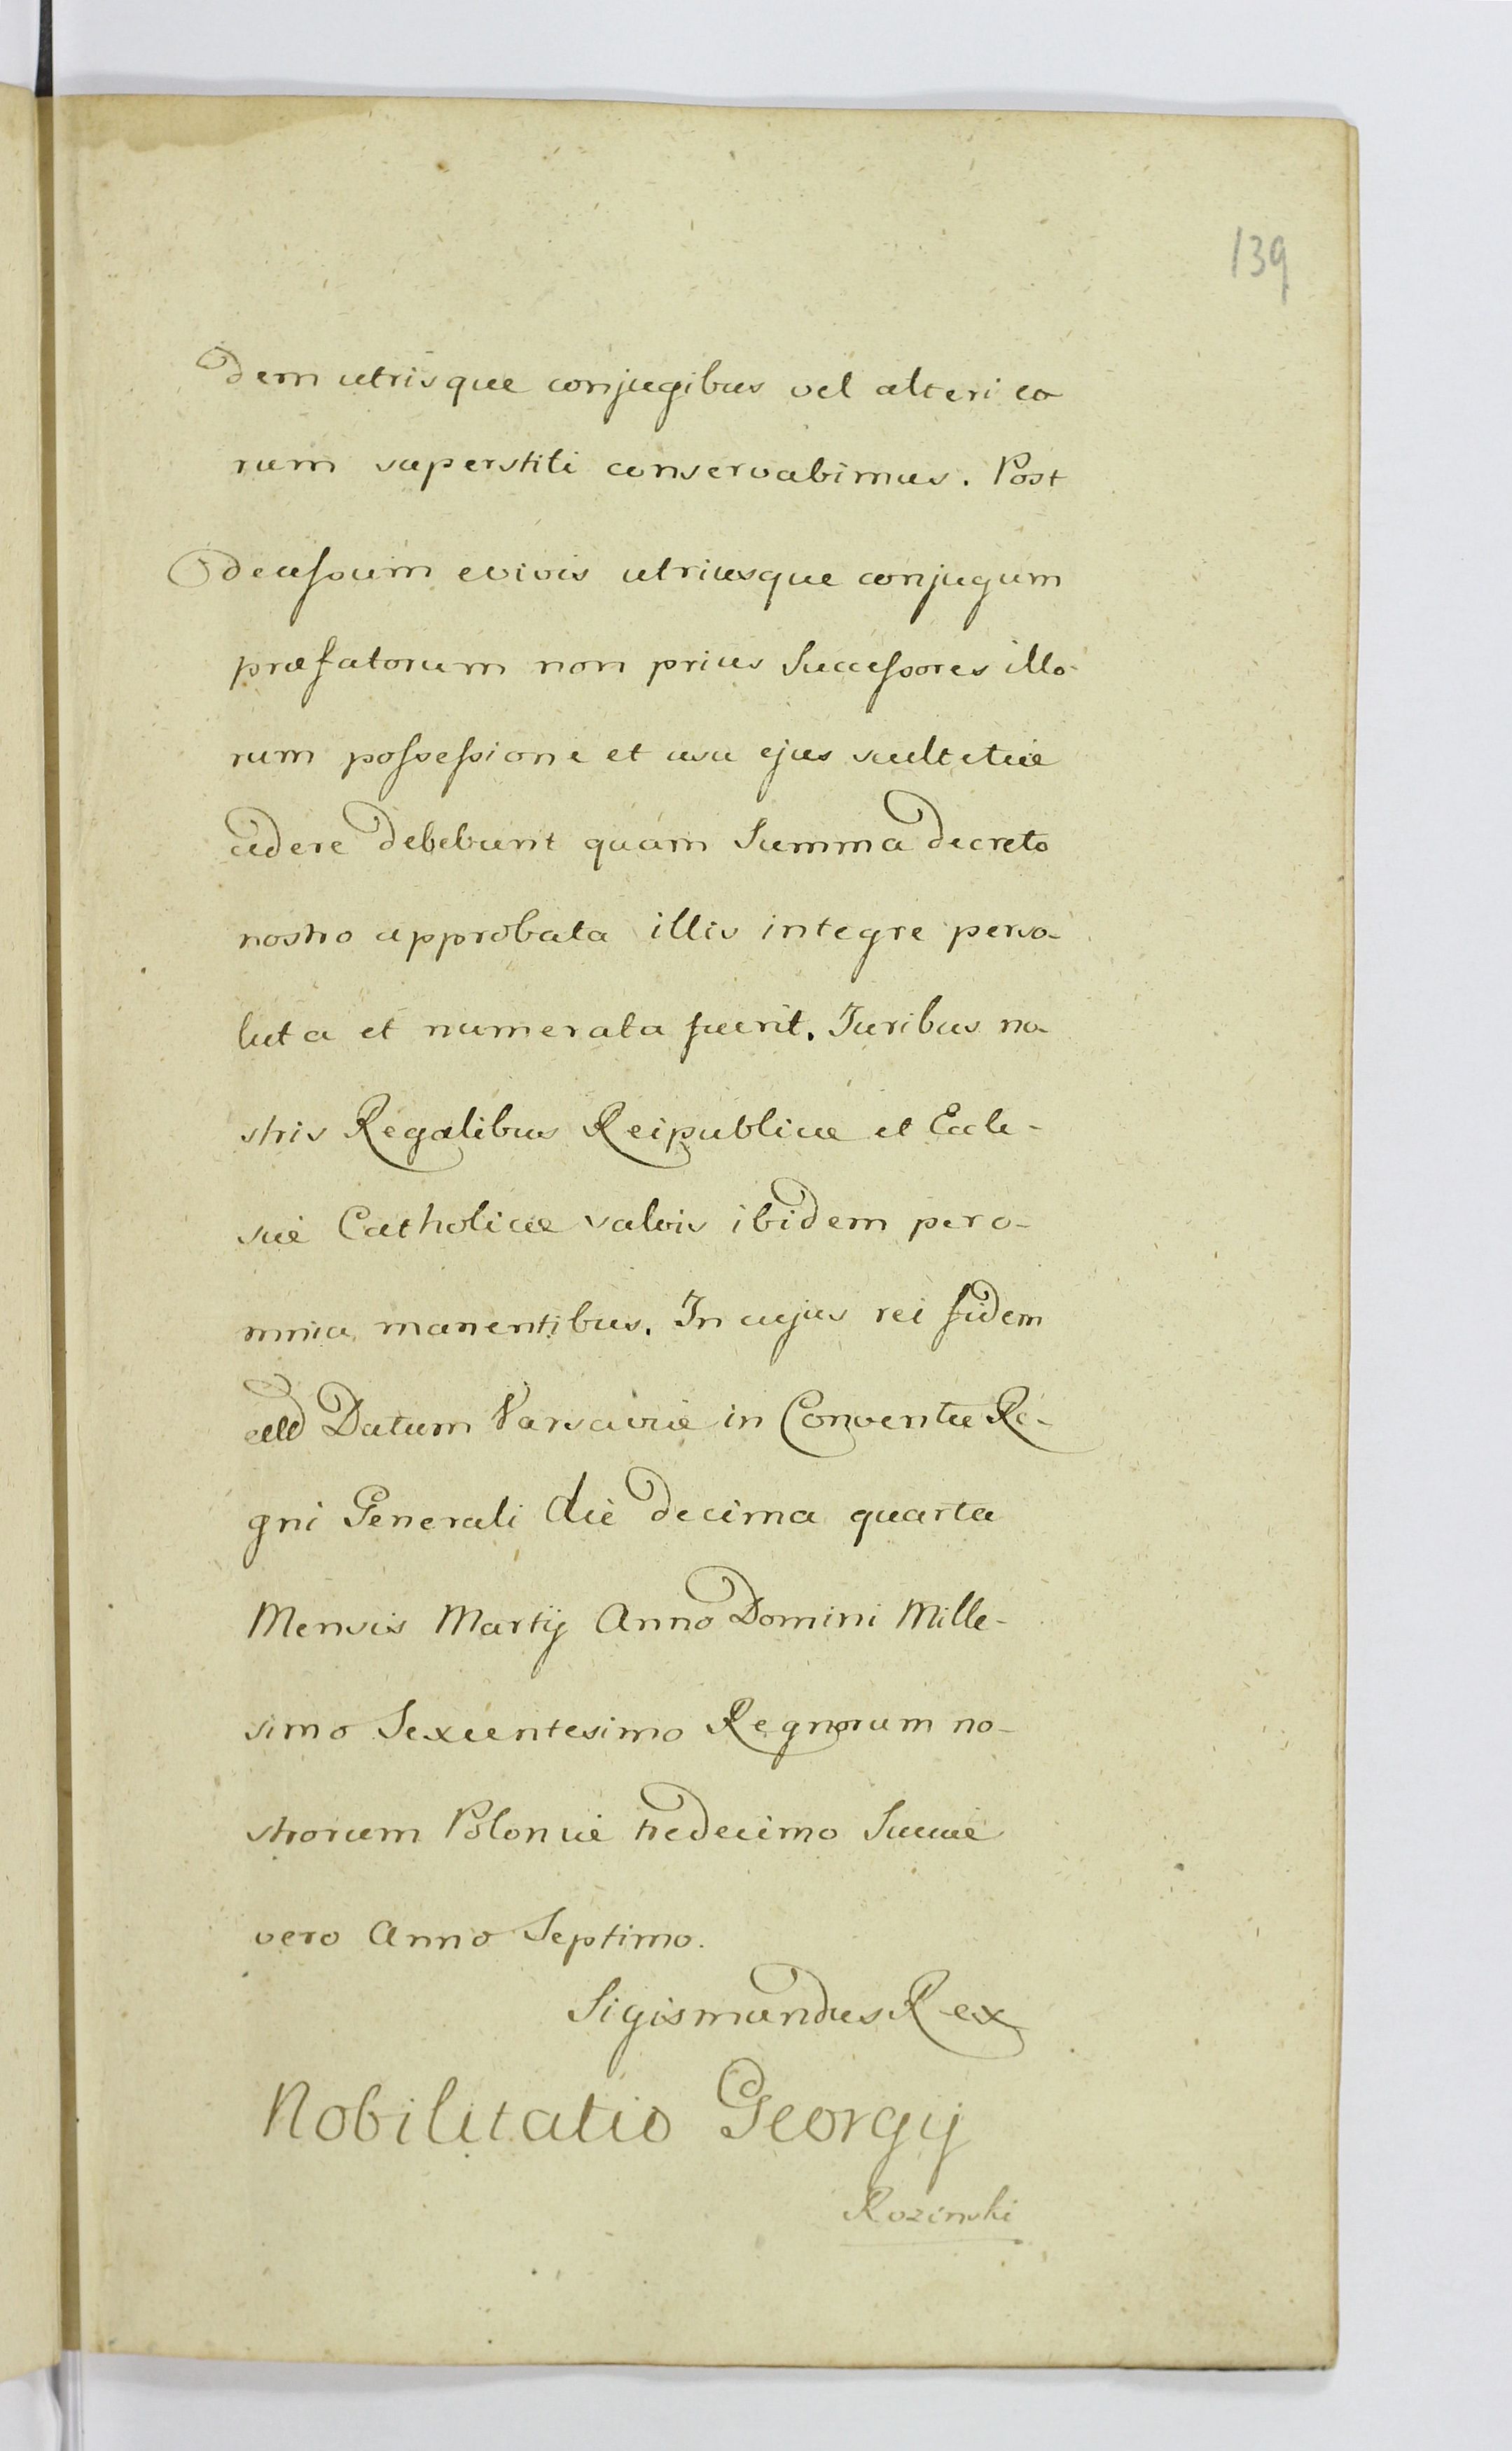 139
dem utrisque conjugibus vel alteri eo
rum superstiti conservabimus. Post
decessum e vivis utriusque conjugum
præfatorum non prius Successores illo-
rum possessione et usu ejus scultetiæ
cedere debebunt quam Summa decreto
nostro approbata illis integre perso-
luta et numerata fuerit. Juribus no
stris Regalibus Reipublicæ et Eccle-
siæ Catholicæ salvis ibidem per o-
mnia manentibus. In cujus rei fidem
Datum Varsaviæ in Conventu Re-
gni Generali die decima quarta
Mensis Martij Anno Domini Mille-
simo Sexcentesimo Regnorum no-
strorum Poloniæ tredecimo Sueciæ
vero Anno Septimo.
Sigismundus Rex
Nobilitatio Georgij
Rozinski